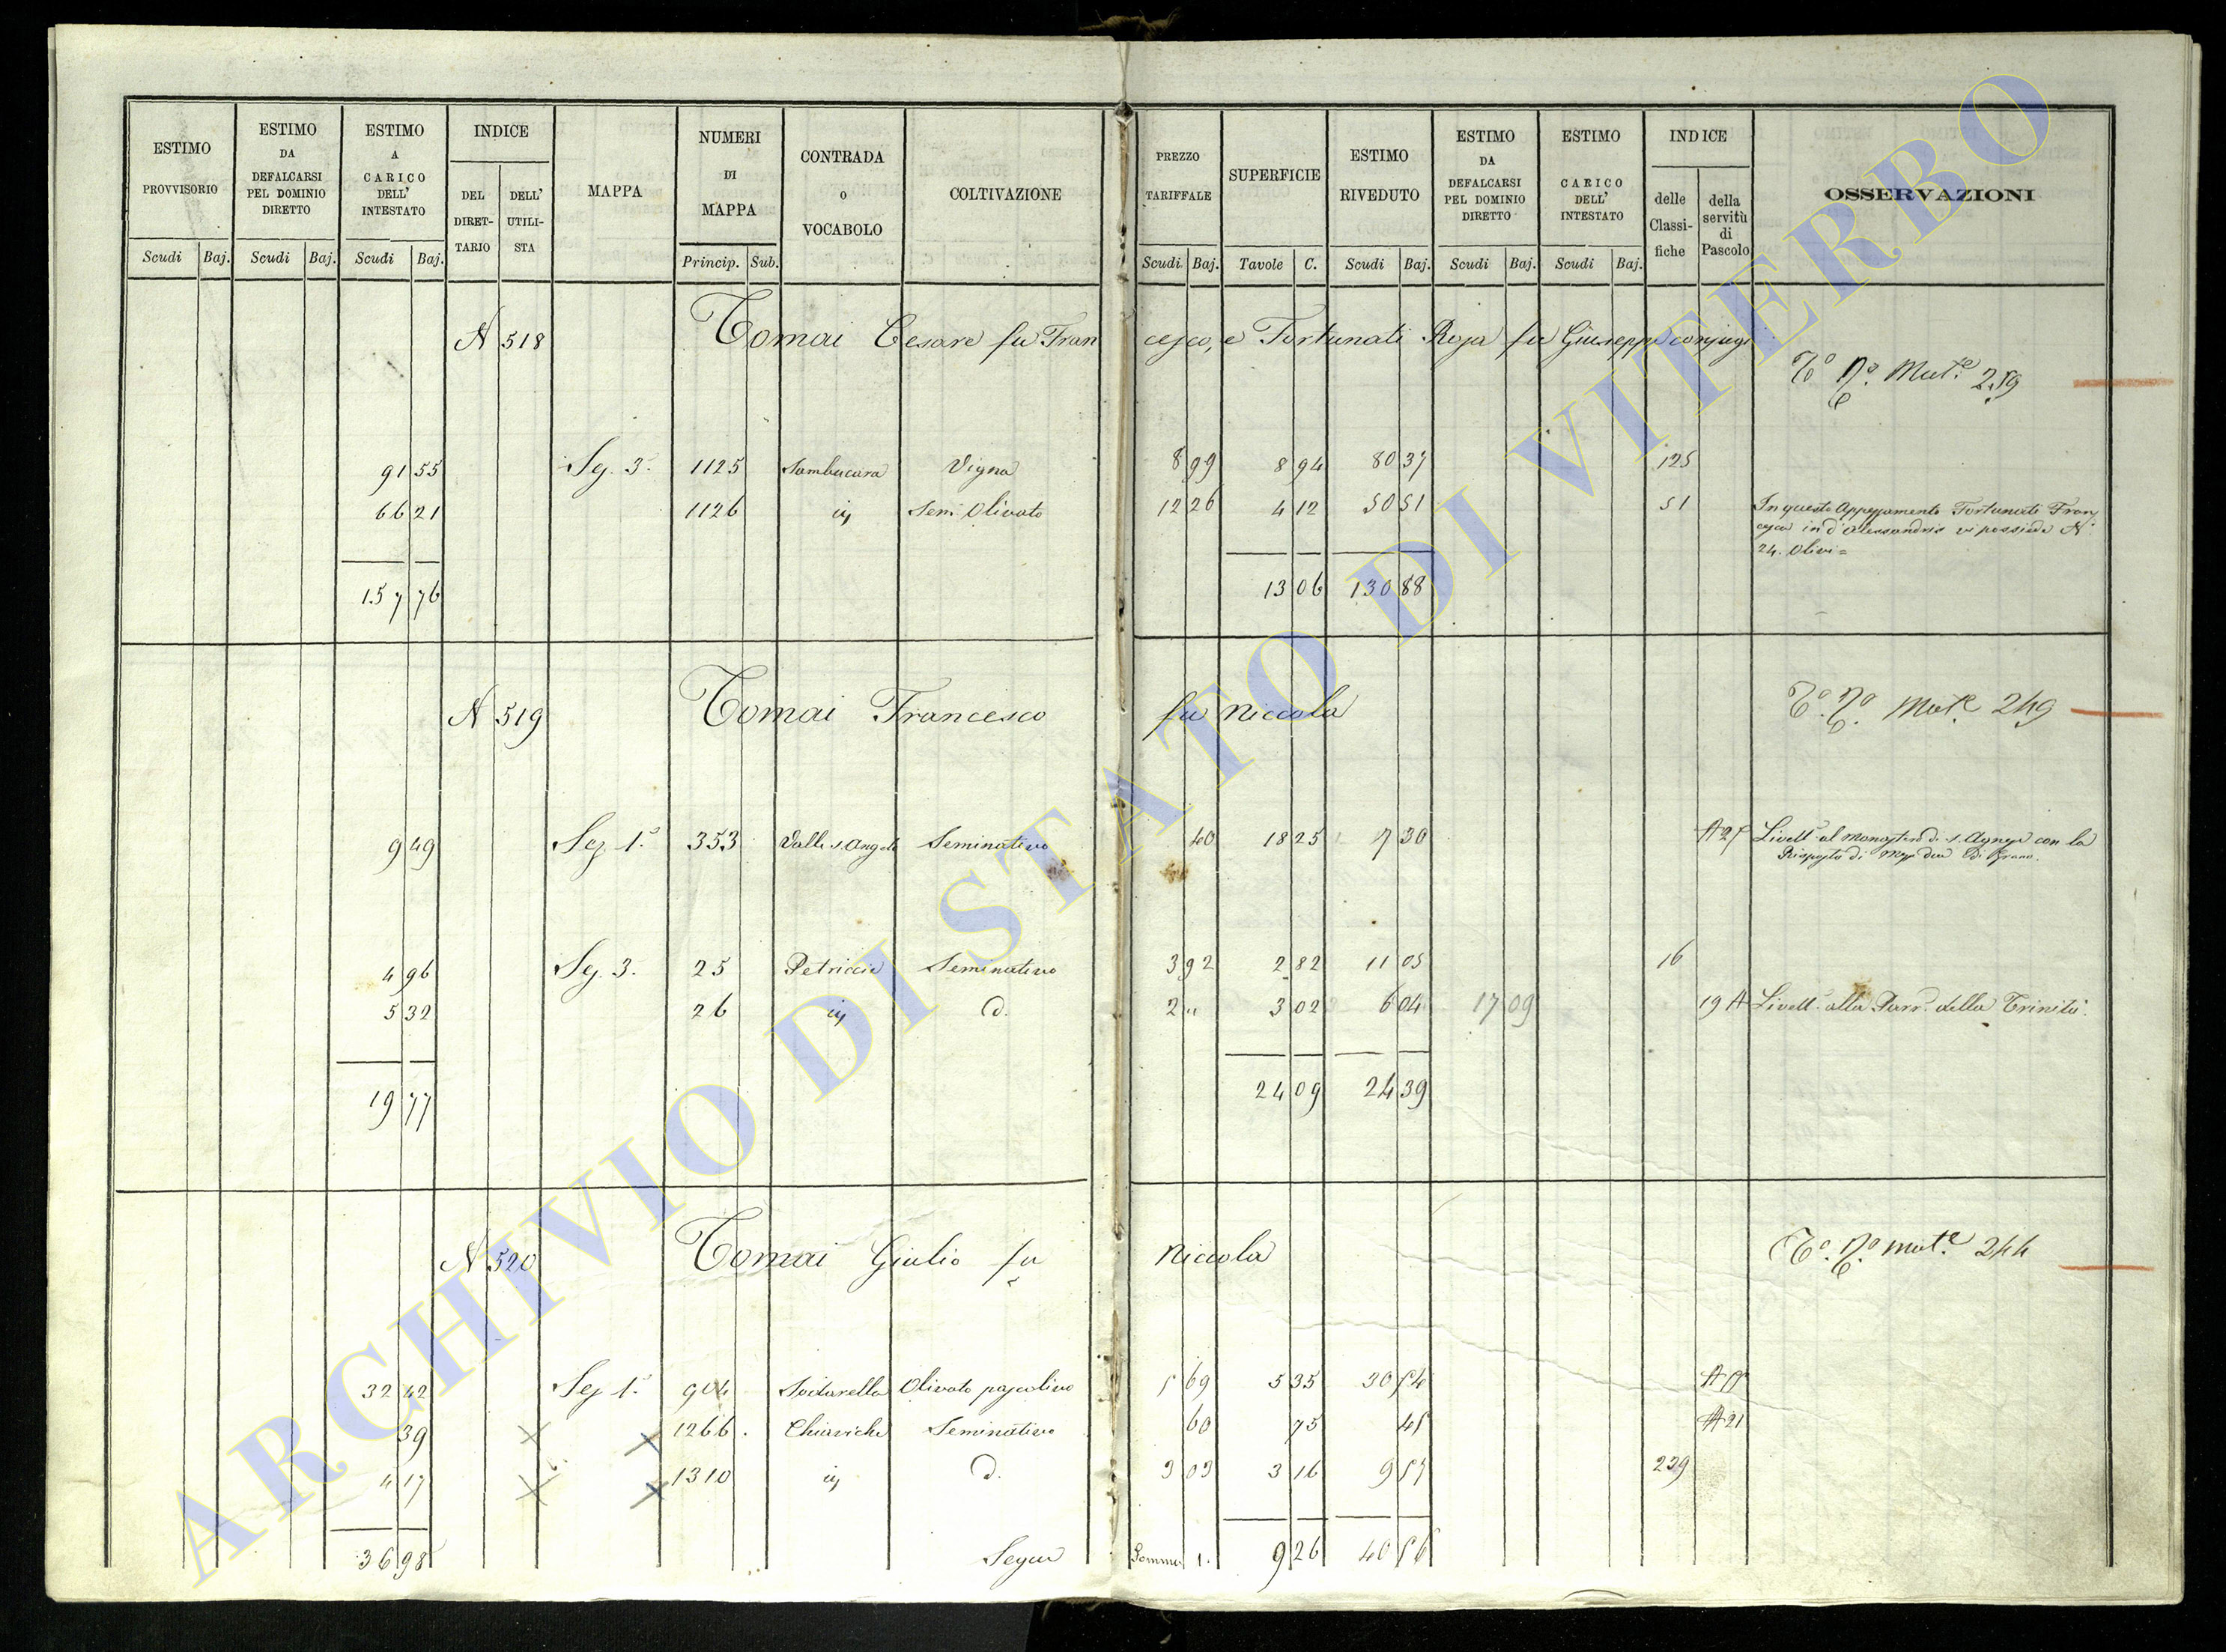 ESTIMO PROVVISORIO
ESTIMO DA DEFALCARSI PEL DOMINIO DIRETTO
ESTIMO A CARICO DELL' INTESTATO
INDICE
DEL DIRETTARIO
DELL' UTILISTA
MAPPA
NUMERI DI MAPPA
CONTRADA o VOCABOLO
COLTIVAZIONE
PREZZO TARIFFALE
SUPERFICIE
ESTIMO RIVEDUTO
ESTIMO DA DEFALCARSI PEL DOMINIO DIRETTO
ESTIMO CARICO DELL' INTESTATO
INDICE
delle Classifiche
della servitù di Pascolo
OSSERVAZIONI
Scudi Baj. Scudi Baj. Scudi Baj. Princip. Sub. Scudi Baj. Tavole C. Scudi Baj. Scudi Baj. Scudi Baj.
N 518 Tomai Cesare fu Francesco, e Fortunati Rosa fu Giuseppe conjugi
Mut.e 259
91 55 Sez. 3. 1125 Sambucara Vigna 8 99 8 94 80 37 125
66 21 1126 ivi Sem. Olivato 12 26 4 12 50 51 51 In questo Appezzamento Fortunati Francesca in d'Alessandris vi possiede N. 24. Olivi =
157 76 13 06 130 88
N 519 Tomai Francesco fu Niccola
Mut.e 249
9 49 Sez. 1. 353 Valle s. Angelo Seminativo 40 18 25 7 30 A 27 Livell. al Monastero di s. Agnese con la Risposta di di Grano.
4 96 Sez. 3. 25 Petriccie Seminativo 3 92 2 82 11 05 16
5 32 26 ivi d. 2 " 3 02 6 04 17 09 19 A Livell. alla Parr. della Trinità.
19 77 24 09 24 39
N 520 Tomai Giulio fu Niccola
Mut.e 244
32 42 Sez. 1. 904 Sodarella Olivato pascolivo 5 69 5 35 30 54
39 1266 Chiaviche Seminativo 60 75 45 A 21
4 17 1310 ivi d. 3 03 3 16 9 57 239
36 98 Segue Somma 9 26 40 56
ARCHIVIO DI STATO DI VITERBO